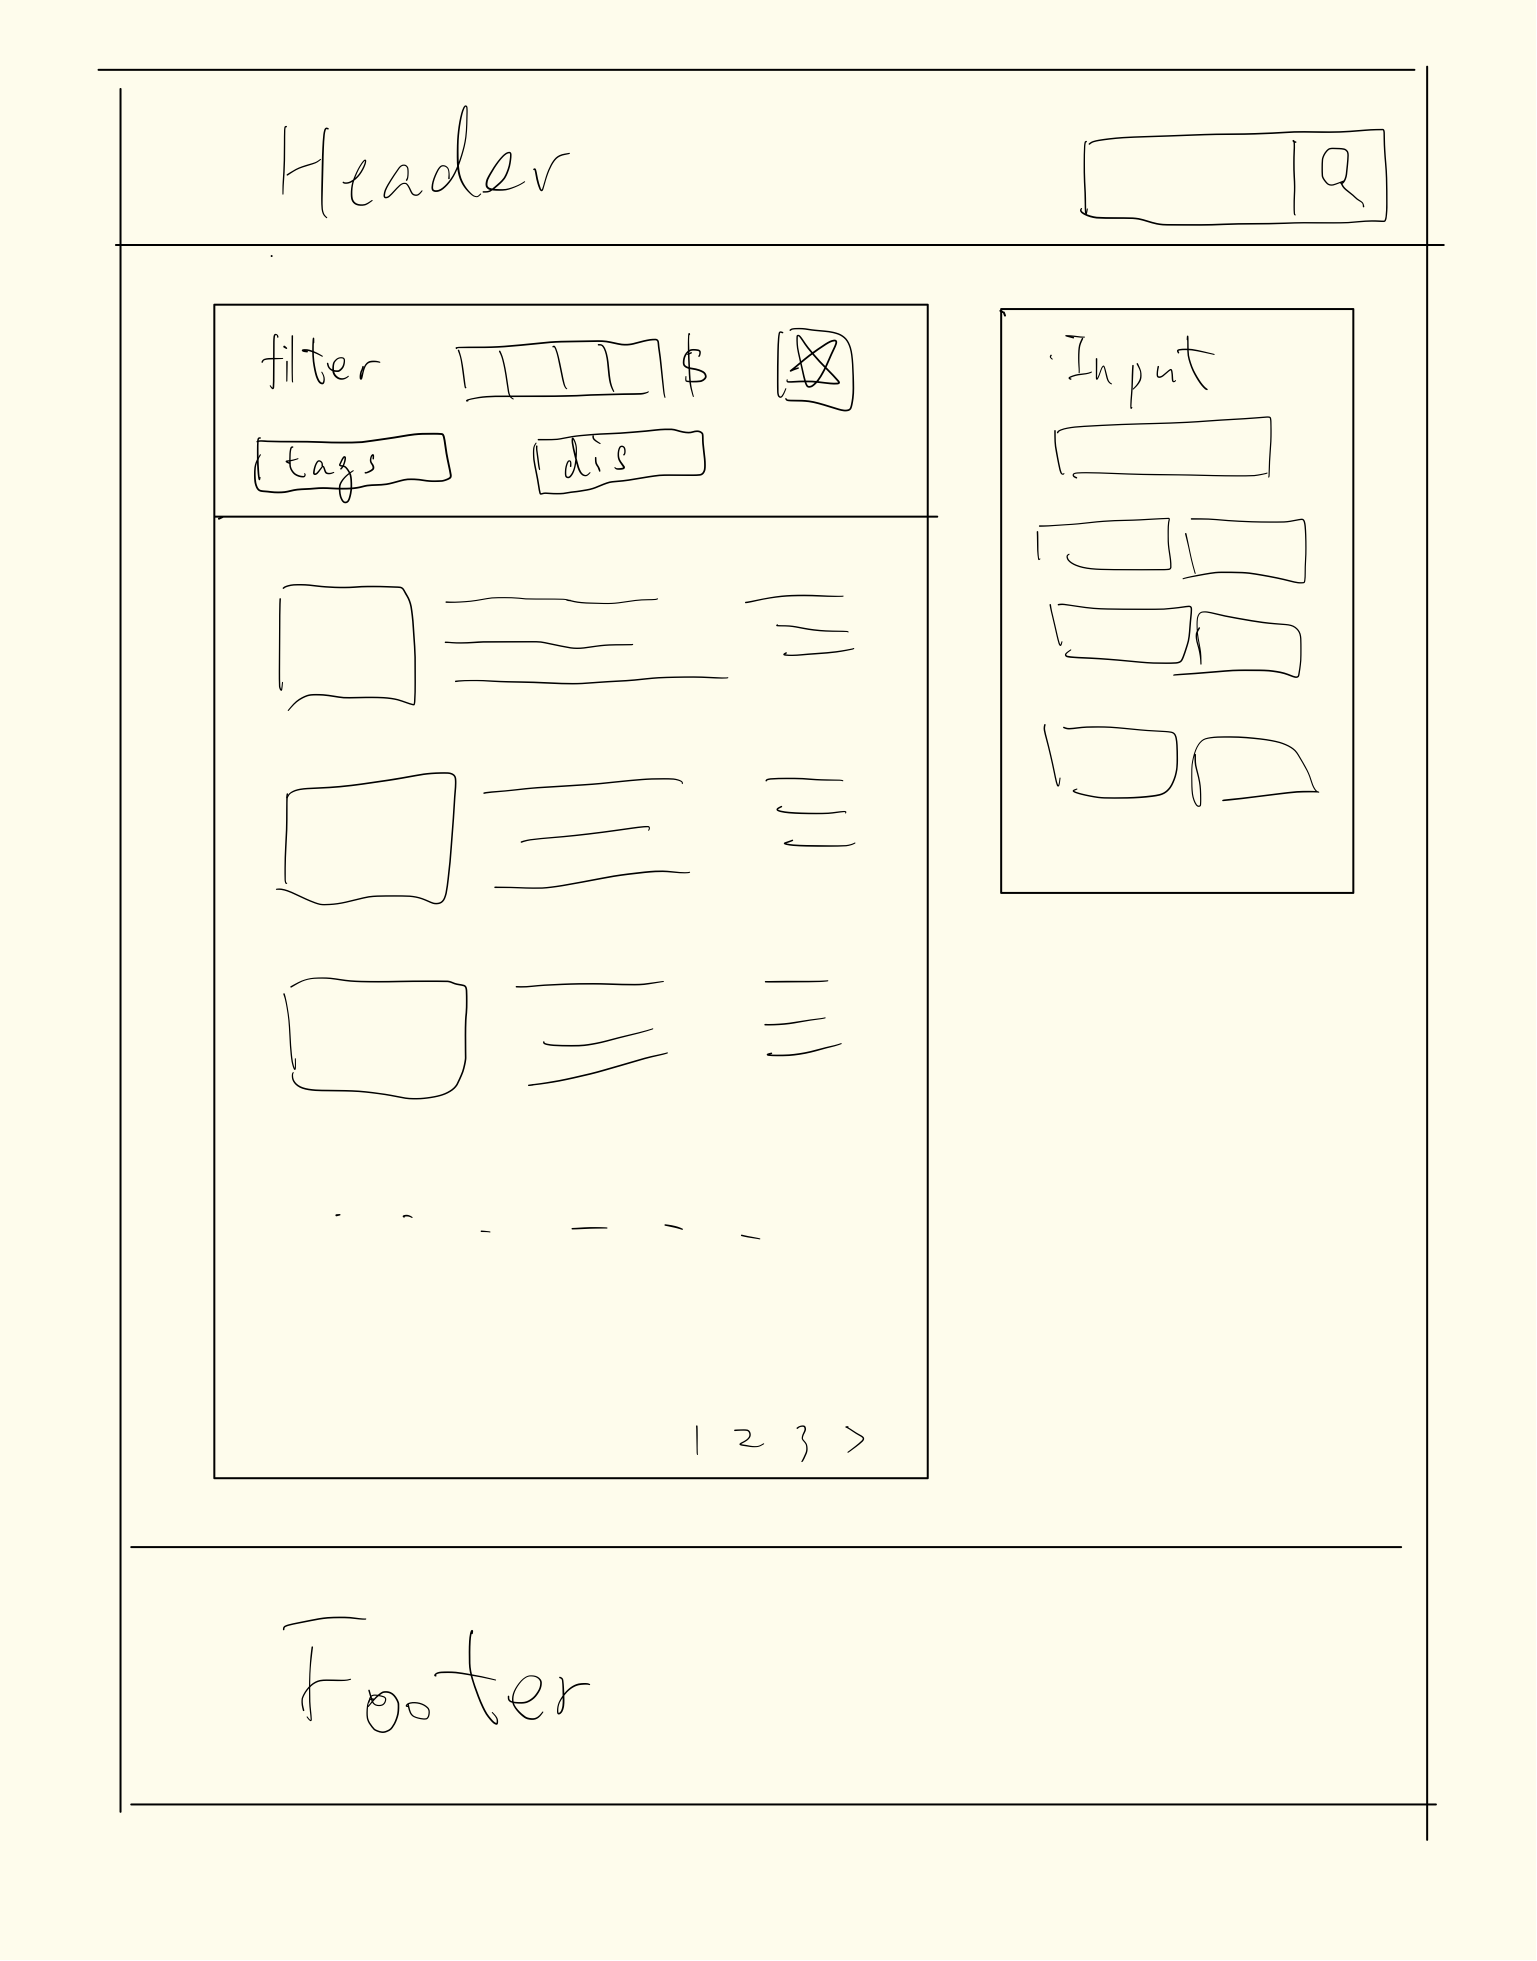 Header
filter $
tags dis
Input
1 2 3 >
Footer